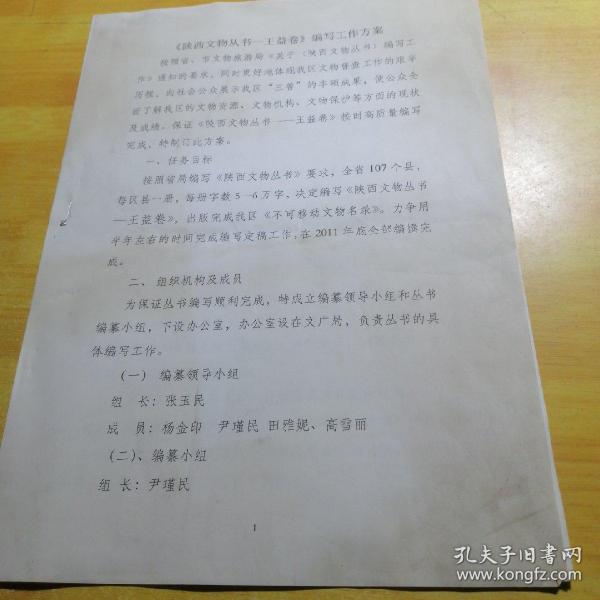 《陕西文物丛书—王益卷》编写工作方案
按照省、市文物旅游局《关于〈陕西文物丛书〉编写工
作》通知的要求，同时更好地体现我区文物普查工作的艰辛
历程，向社会公众展示我区“三普”的丰硕成果，使公众全
面了解我区的文物资源、文物机构、文物保护等方面的现状
及成绩。保证《陕西文物丛书——王益卷》按时高质量编写
完成，特制订此方案。
一、任务目标
按照省局编写《陕西文物丛书》要求，全省107个县，
每区县一册，每册字数5—6万字，决定编写《陕西文物丛书
—王益卷》，出版完成我区《不可移动文物名录》。力争用
半年左右的时间完成编写定稿工作，在2011年底全部编撰完
成。
二、组织机构及成员
为保证丛书编写顺利完成，特成立编纂领导小组和丛书
编纂小组，下设办公室，办公室设在文广局，负责丛书的具
体编写工作。
（一）编纂领导小组
组 长：张玉民
成 员：杨金印 尹瑾民 田雅妮、高雪丽
（二）、编纂小组
组 长：尹瑾民
1
孔夫子旧书网
www.kongfz.com